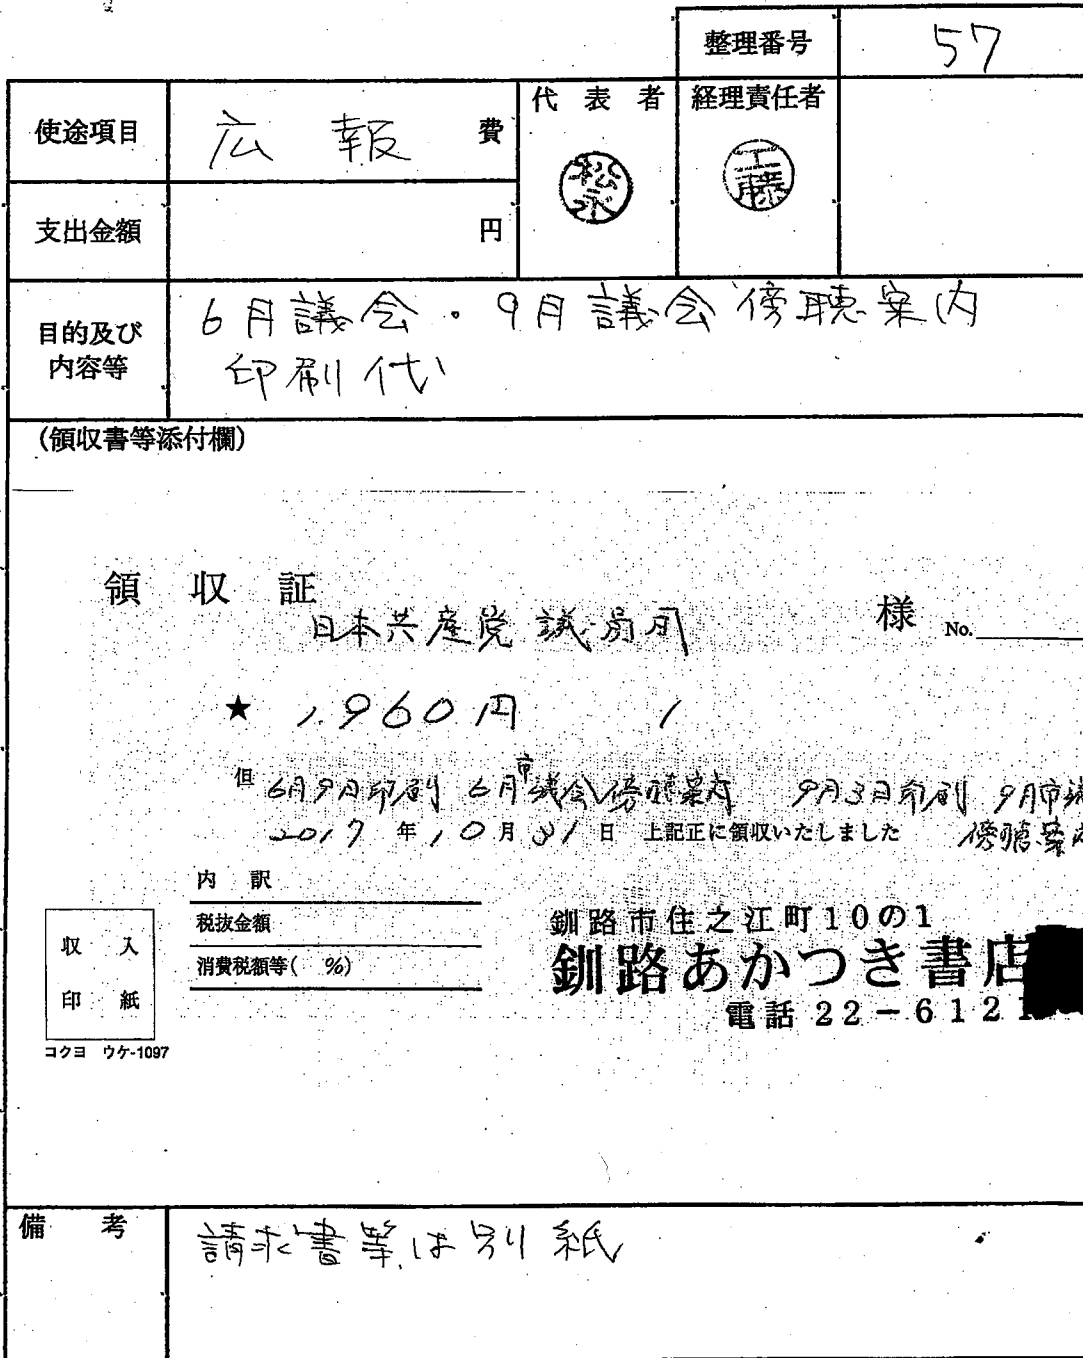 整理番号 57
使途項目 広報 費 代表者 経理責任者
松永 工藤
支出金額 円
目的及び内容等 6月議会・9月議会傍聴案内
印刷代
(領収書等添付欄)
領収証
日本共産党議員団 様 No.
★ 1,960円
但 6月9日印刷 6月市議会傍聴案内 9月3日印刷 9月市議
傍聴案内
2017年10月31日 上記正に領収いたしました
内訳
税抜金額
消費税額等( %)
収入
印紙
コクヨ ウケ-1097
釧路市住之江町10の1
釧路あかつき書店
電話 22-6121
備考 請求書等は別紙